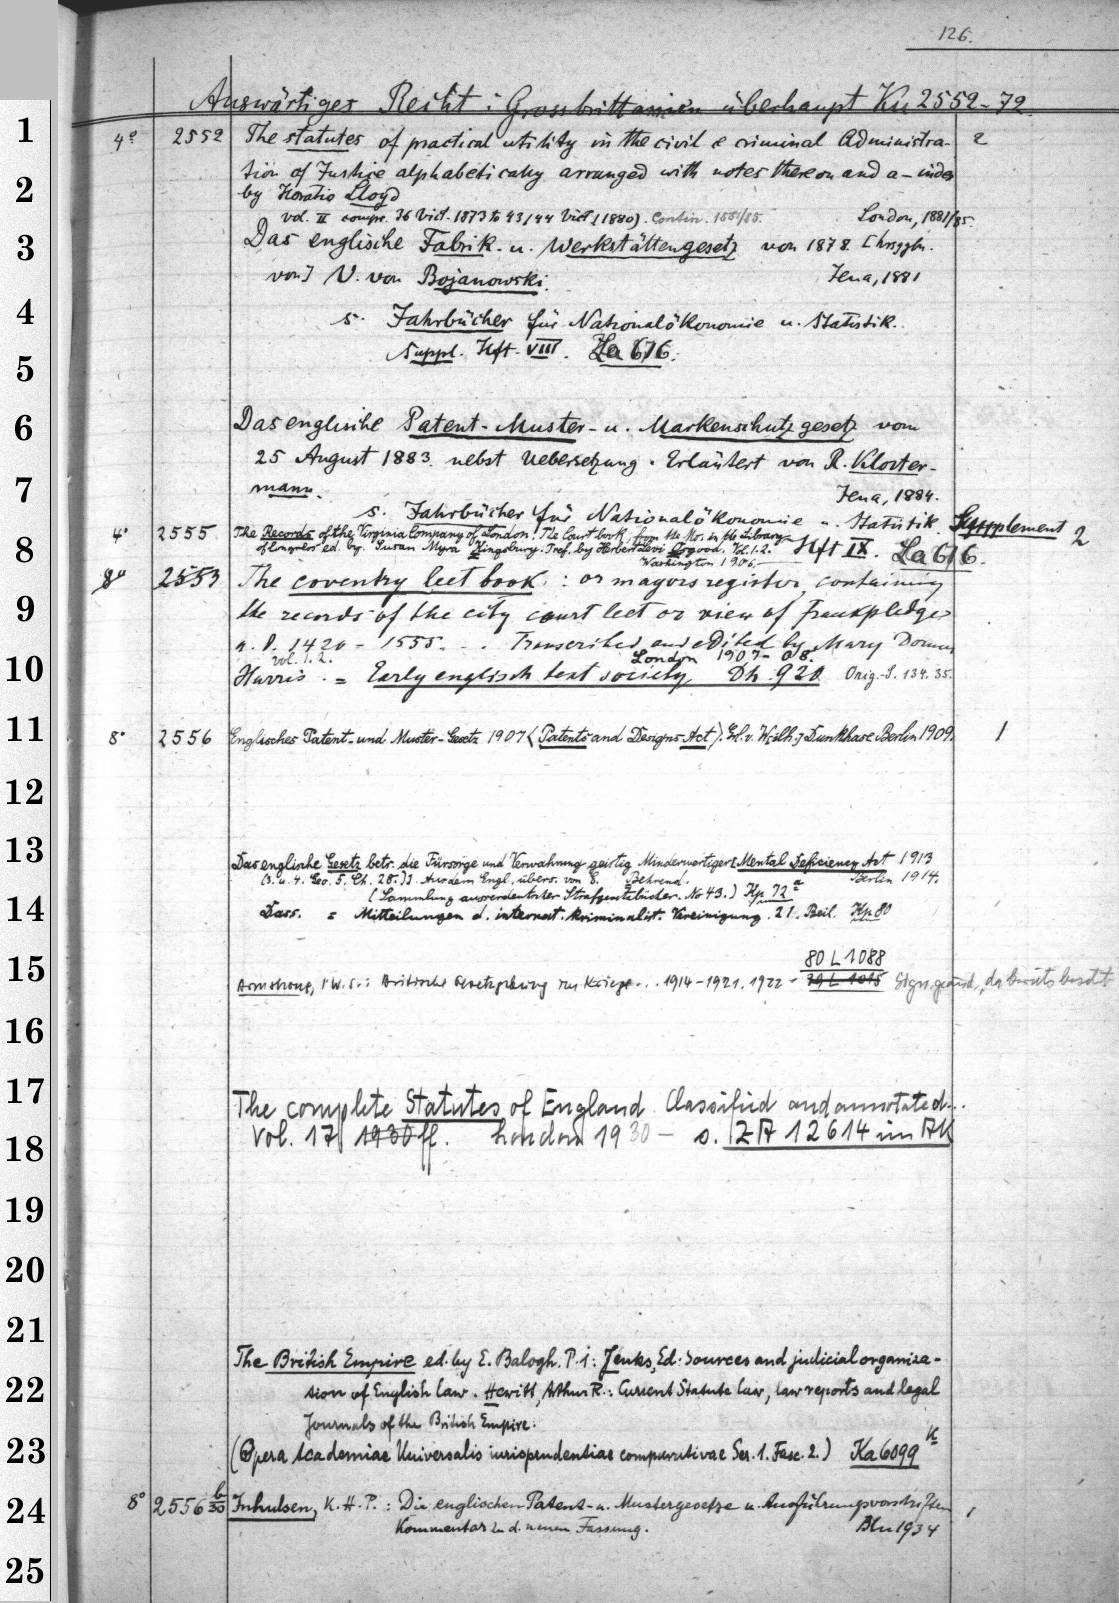 126.
Auswärtiges Recht: Grossbrittanien überhaupt Ku 2552-72.
1
4° 2552 The statutes of practical utility in the civil & criminal Administra- 2
2
tion of Justice alphabetically arranged with notes thereon and a-index
by Horatio Lloyd
vol. II compr. 36 Vict. 1873 to 43/44 Vict. (1880). Contin. 1881/85. London, 1881/85.
3
Das englische Fabrik- u. Werkstättengesetz von 1878. [hrsggbn.
von] V. von Bojanowski. Jena, 1881
4
s. Jahrbücher für Nationalökonomie u. Statistik.
5
Suppl. Hft. VIII. La 676.
6
Das englische Patent-Muster- u. Markenschutzgesetz vom
25 August 1883. nebst Uebersetzung. Erläutert von R. Kloster-
7
mann. Jena, 1884.
s. Jahrbücher für Nationalökonomie u. Statistik. Supplement
4° 2555 The Records of the Virginia Company of London. The Court book, from the Ms. in the Library 2
8
of Congress ed. by Susan Myra Kingsbury. Pref. by Herbert Levi Osgood. Vol. 1.2. Hft IX. La 676.
Washington 1906.
8° 2553 The coventry leet book: or mayors register, containing
9
the records of the city court leet or view of frankpledge
a. D. 1420 - 1555. . . Transcribed and edited by Mary Dormer
vol. 1. 2. London 1907-08.
10
Harris. = Early englisch text society Dh 920 Orig.-S. 134. 35.
11
8° 2556 Englisches Patent- und Muster-Gesetz 1907 (Patents and Designs Act). Erl. v. Wilh. Dunkhase Berlin 1909. 1
12
13
Das englische Gesetz betr. die Fürsorge und Verwahrung geistig Minderwertiger [Mental Deficiency Act 1913
(3. u. 4. Geo. 5. Ch. 28.)]. Aus dem Engl. übers. von E. Behrend. Berlin 1914.
(Sammlung ausserdeutscher Strafgesetzbücher. No 43.) Kp 72 a
14
Dass. = Mitteilungen d. internat. kriminalist. Vereinigung. 21. Beil. Kp 80
15
80 L 1088
Armstrong, W. S.: Britische Gesetzgebung im Kriege... 1914-1921. 1922 - 79 L 1015 Sign. geänd., da bereits besetzt
16
17
The complete Statutes of England Classified and annotated...
18
Vol. 17 1930 ff. London 1930 - s. ZA 12614 im AK
19
20
21
The British Empire ed. by E. Balogh. P. 1: Jenks, Ed: Sources and judicial organiza-
22
tion of English Law. Hewitt, Arthur R.: Current Statute law, law reports and legal
Journals of the British Empire.
23
(Opera Academiae Universalis iurisprudentiae comparativae Ser. 1. Fasc. 2.) Ka 6099 k
24
8° 2556 b/30 Inhulsen, K. H. P.: Die englischen Patent- u. Mustergesetze u. Ausführungsvorschriften 1
Kommentar in d. neuen Fassung. Bln 1934
25